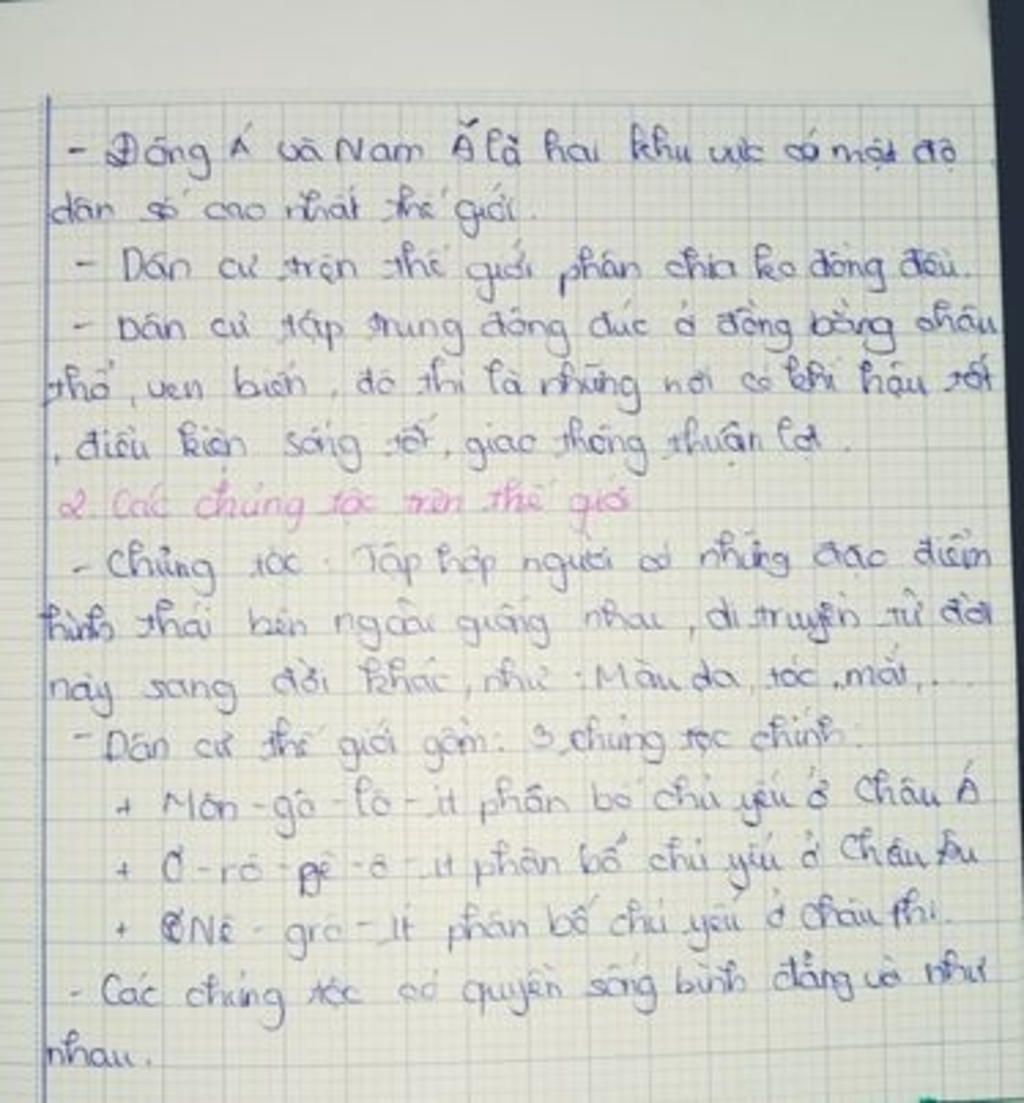 - Đông Á và Nam Á là hai khu vực có mật độ
dân số cao nhất thế giới.
- Dân cư trên thế giới phân chia ko đồng đều.
- Dân cư tập trung đông đúc ở đồng bằng châu
thổ, ven biển, đô thị là những nơi có khí hậu tốt
, điều kiện sống tốt, giao thông thuận lợi.
2 Các chủng tộc trên thế giới
- Chủng tộc: Tập hợp người có những đặc điểm
hình thái bên ngoài giống nhau, di truyền từ đời
này sang đời khác, như: Màu da, tóc, mắt,...
- Dân cư thế giới gồm: 3 chủng tộc chính:
+ Môn-gô-lô-it phân bố chủ yếu ở Châu Á
+ Ơ-rô-pê-ô-it phân bố chủ yếu ở Châu Âu
+ Nê-grô-it phân bố chủ yếu ở Châu Phi.
- Các chủng tộc có quyền sống bình đẳng và như
nhau.